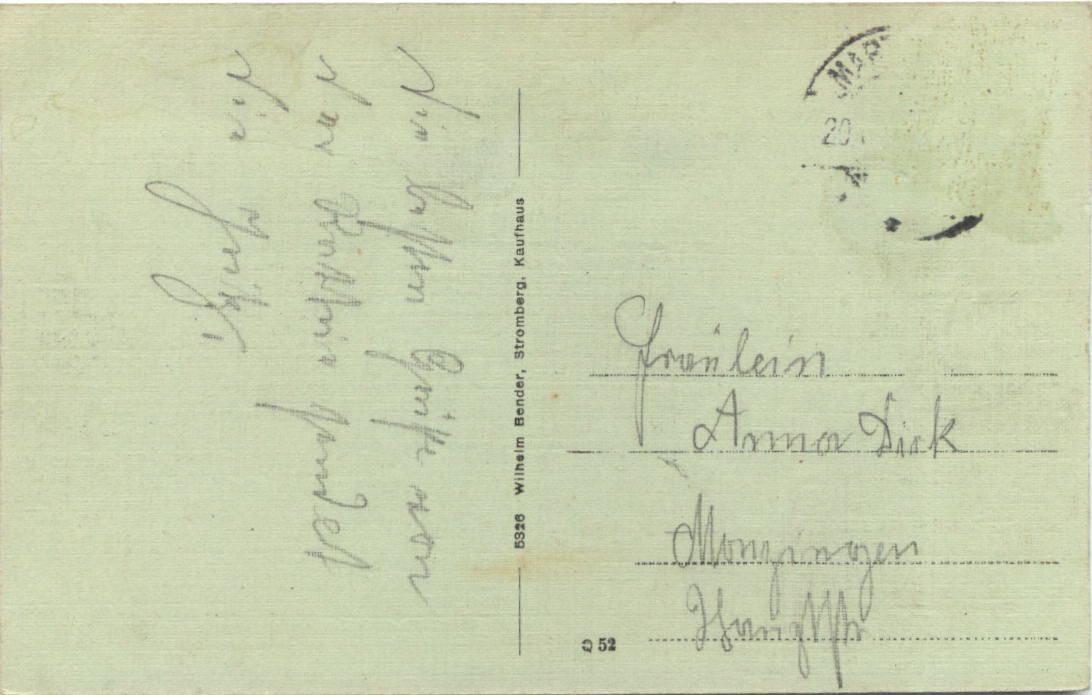 Die besten Grüße von
der sendet
Dir
5326 Wilhelm Bender, Stromberg, Kaufhaus
MAR
20
Fräulein
Anna Dick
Monzingen
Hauptstr
Q 52